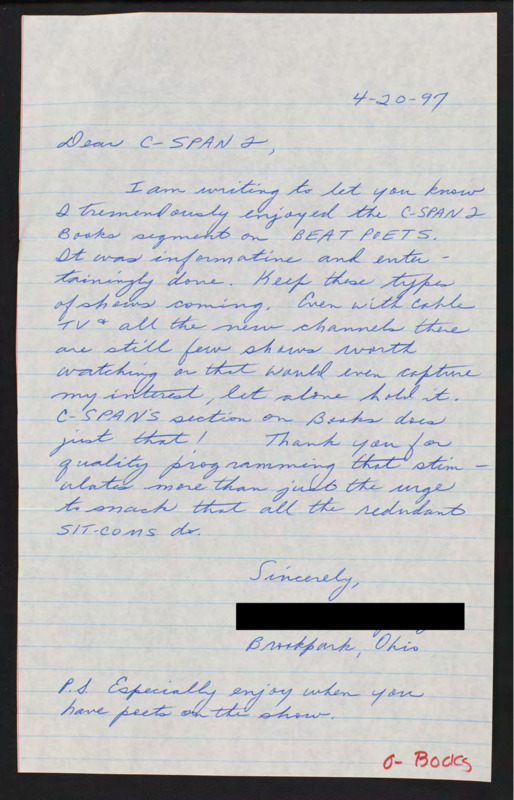 4-20-97
Dear C-SPAN 2,
I am writing to let you know
I tremendously enjoyed the C-SPAN 2
Books segment on BEAT POETS.
It was informative and enter-
tainingly done. Keep these types
of shows coming. Even with cable
TV & all the new channels there
are still few shows worth
watching or that would even capture
my interest, let alone hold it.
C-SPAN'S section on Books does
just that! Thank you for
quality programming that stim-
ulates more than just the urge
to snack that all the redundant
SIT-COMS do.
Sincerely,
Brookpark, Ohio
P.S. Especially enjoy when you
have poets on the show.
O- Books